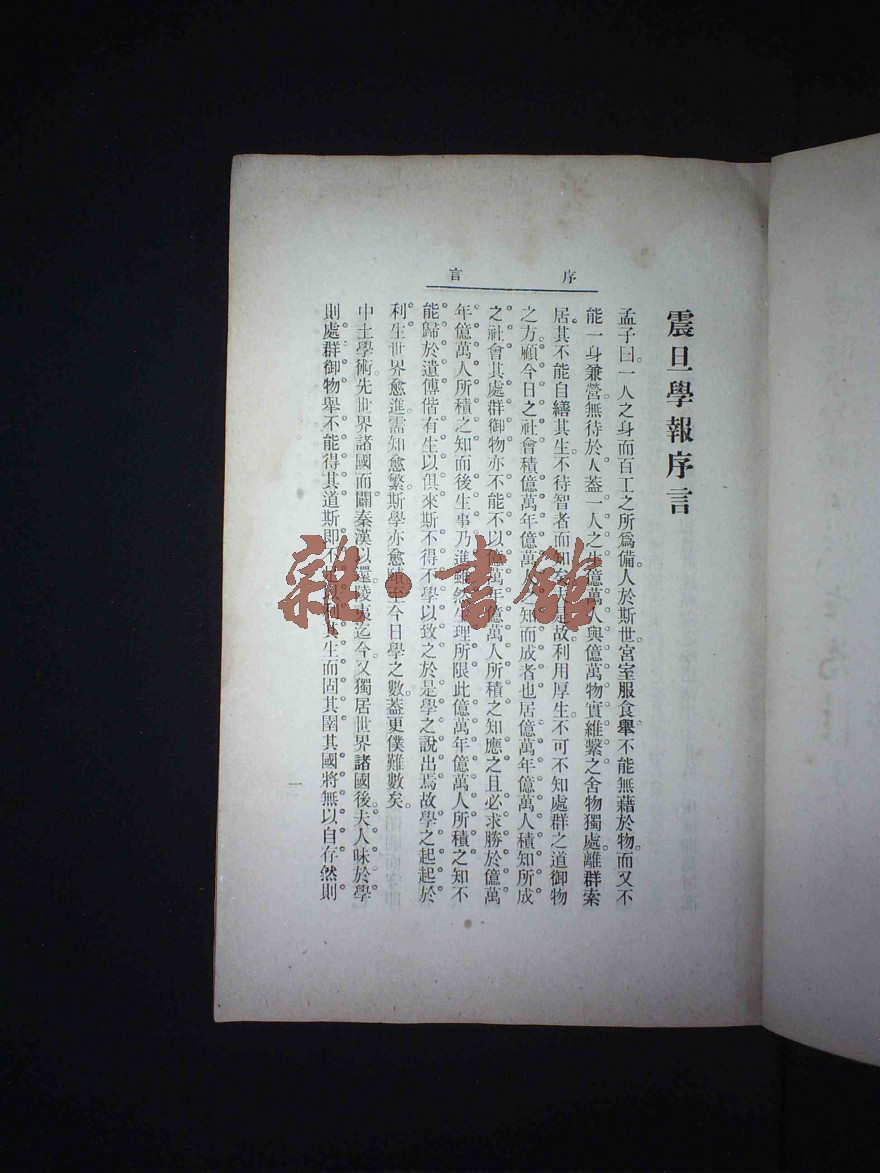 序言
震旦學報序言
孟子曰一人之身而百工之所爲備人於斯世宮室服食舉不能無藉於物而又不
能一身兼營無待於人葢一人之生億萬人與億萬物實維繫之舍物獨處離群索
居其不能自繕其生不待智者而知矣是故利用厚生不可不知處群之道御物
之方顧今日之社會積億萬年億萬之知而成者也居億萬年億萬人積知所成
之社會其處群御物亦不能不以億萬年億萬人所積之知應之且必求勝於億萬
年億萬人所積之知而後生事乃進雖然生理所限此億萬年億萬人所積之知不
能歸於遺傳偕有生以俱來斯不得不學以致之於是學之說出焉故學之起起於
利生世界愈進需知愈繁斯學亦愈賾至今日學之數葢更僕難數矣
中土學術先世界諸國而闢秦漢以還陵夷迄今又獨居世界諸國後夫人昧於學
則處群御物舉不能得其道斯即不其生而固其圉其國將無以自存然則
一
雜·書館